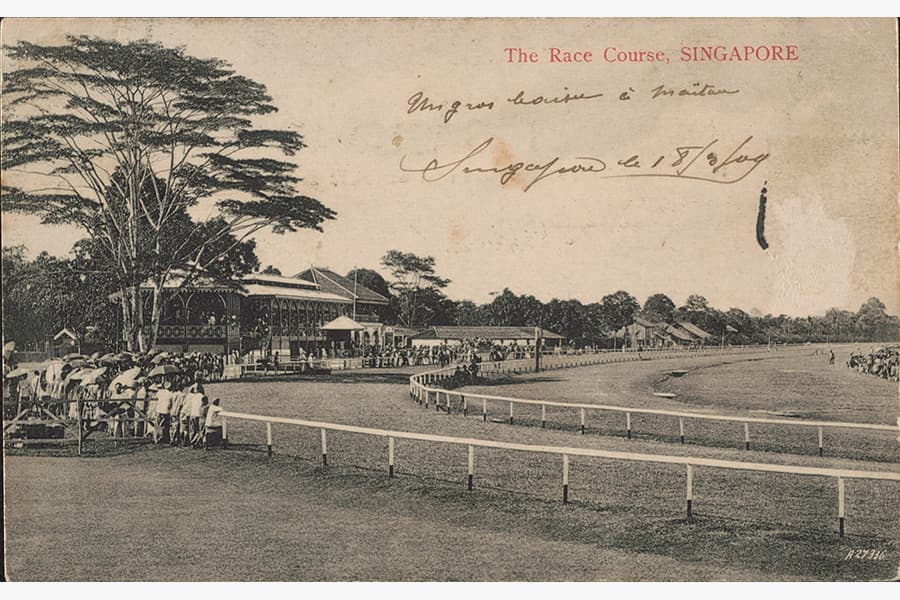 The Race Course, SINGAPORE
Un gros baiser à
Singapore le 18/3/09
A27336